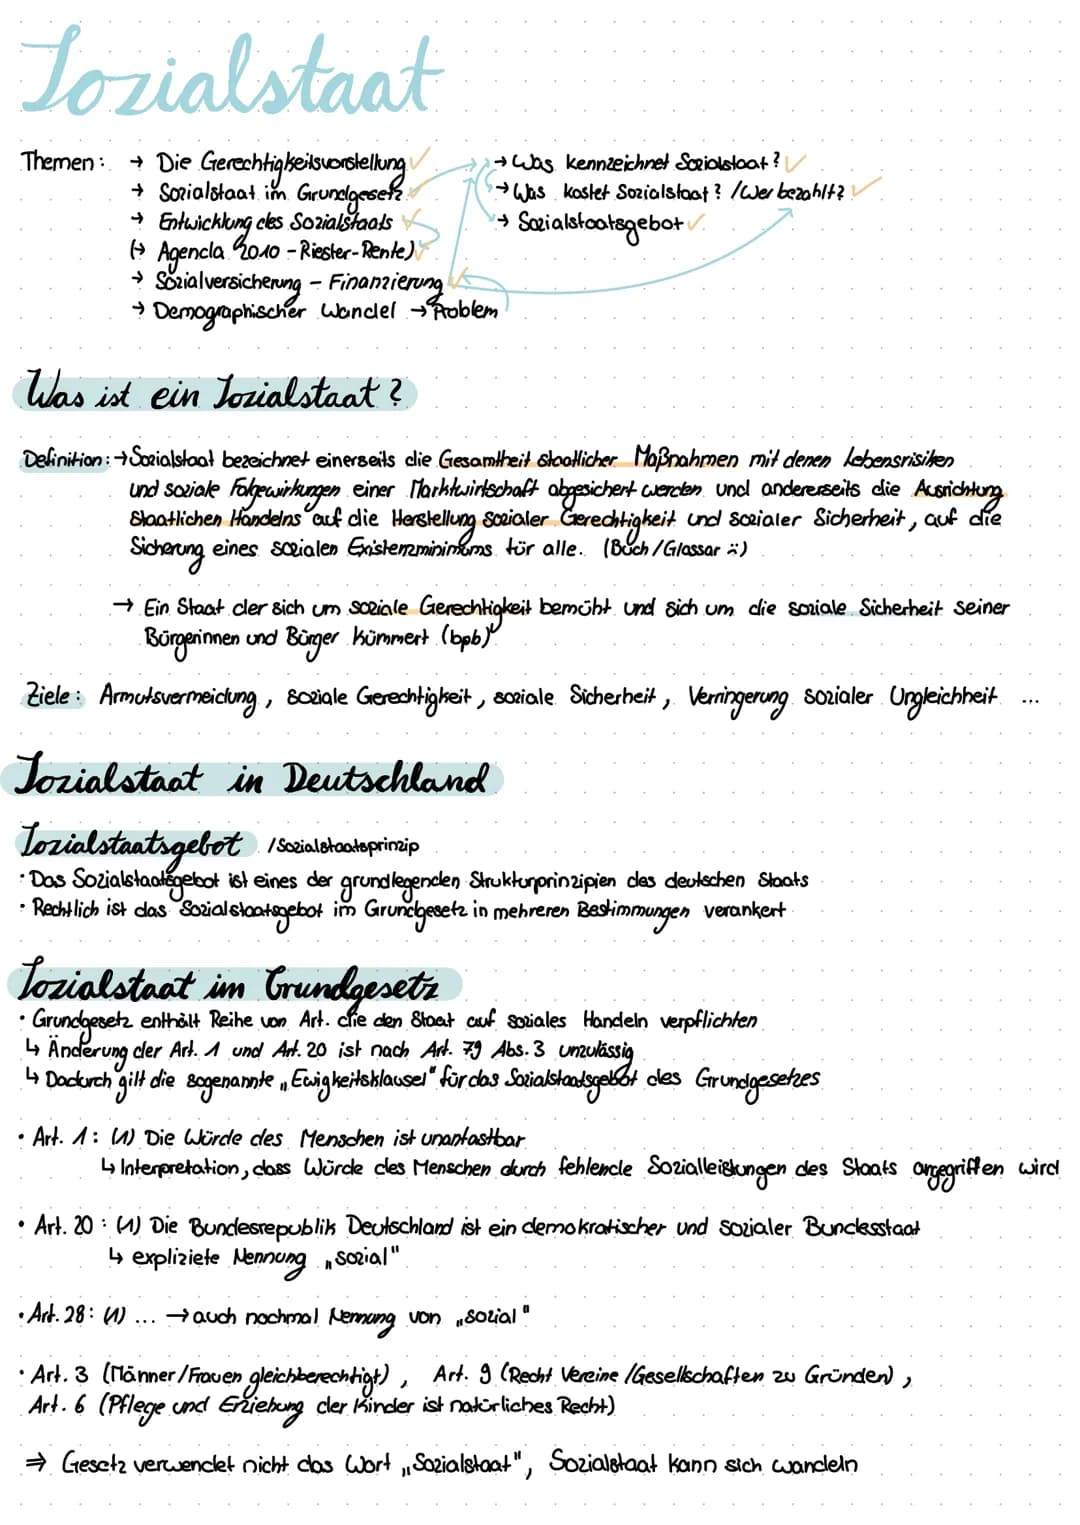 Sozialstaat
Themen: → Die Gerechtigkeitsvorstellung ✓
→ Sozialstaat im Grundgesetz ✓
→ Entwicklung des Sozialstaats ✓
(→ Agenda 2010 - Riester-Rente) ✓
→ Sozialversicherung - Finanzierung ✓
→ Demographischer Wandel → Problem
→ Was kennzeichnet Sozialstaat? ✓
→ Was kostet Sozialstaat? /Wer bezahlt? ✓
→ Sozialstaatsgebot ✓
Was ist ein Sozialstaat?
Definition: → Sozialstaat bezeichnet einerseits die Gesamtheit staatlicher Maßnahmen mit denen Lebensrisiken
und soziale Folgewirkungen einer Marktwirtschaft abgesichert werden und andererseits die Ausrichtung
staatlichen Handelns auf die Herstellung sozialer Gerechtigkeit und sozialer Sicherheit, auf die
Sicherung eines sozialen Existenzminimums für alle. (Buch/Glossar ☺)
→ Ein Staat der sich um soziale Gerechtigkeit bemüht und sich um die soziale Sicherheit seiner
Bürgerinnen und Bürger kümmert (bpb)
Ziele: Armutsvermeidung, soziale Gerechtigkeit, soziale Sicherheit, Verringerung sozialer Ungleichheit ...
Sozialstaat in Deutschland
Sozialstaatsgebot /Sozialstaatsprinzip
· Das Sozialstaatsgebot ist eines der grundlegenden Strukturprinzipien des deutschen Staats
· Rechtlich ist das Sozialstaatsgebot im Grundgesetz in mehreren Bestimmungen verankert
Sozialstaat im Grundgesetz
· Grundgesetz enthält Reihe von Art. die den Staat auf soziales Handeln verpflichten
↳ Änderung der Art. 1 und Art. 20 ist nach Art. 79 Abs. 3 unzulässig
↳ Dadurch gilt die sogenannte „Ewigkeitsklausel" für das Sozialstaatsgebot des Grundgesetzes
· Art. 1: (1) Die Würde des Menschen ist unantastbar
↳ Interpretation, dass Würde des Menschen durch fehlende Sozialleistungen des Staats angegriffen wird
· Art. 20: (1) Die Bundesrepublik Deutschland ist ein demokratischer und sozialer Bundesstaat
↳ expliziete Nennung „sozial"
· Art. 28: (1) ... → auch nochmal Nennung von „sozial"
· Art. 3 (Männer/Frauen gleichberechtigt), Art. 9 (Recht Vereine/Gesellschaften zu Gründen),
Art. 6 (Pflege und Erziehung der Kinder ist natürliches Recht)
⇒ Gesetz verwendet nicht das Wort „Sozialstaat", Sozialstaat kann sich wandeln